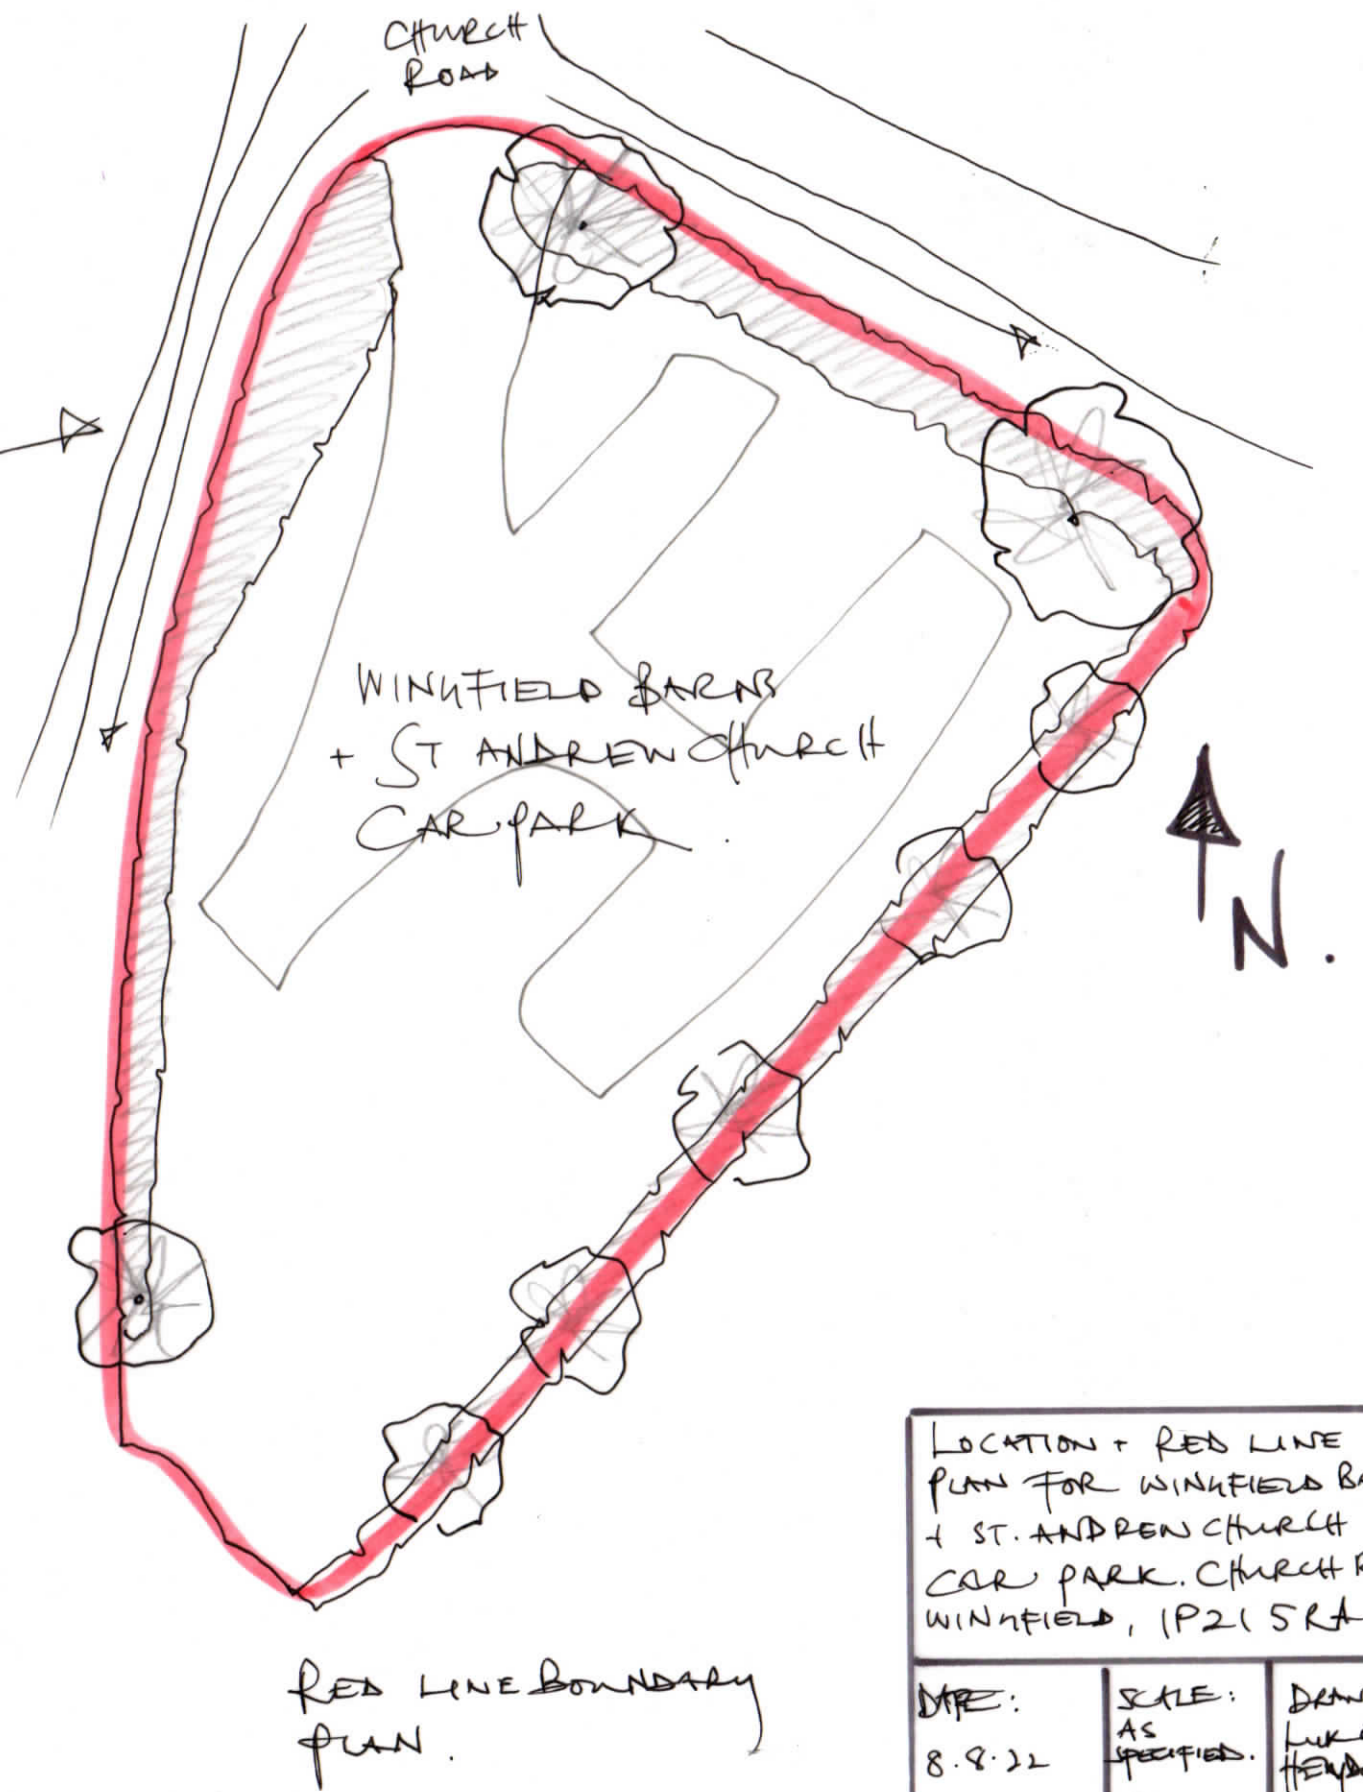 CHURCH
ROAD
WINGFIELD BARNS
+ ST ANDREW CHURCH
CAR PARK.
N.
RED LINE BOUNDARY
PLAN.
LOCATION + RED LINE
PLAN FOR WINGFIELD BA
+ ST. ANDREW CHURCH
CAR PARK. CHURCH R
WINGFIELD, IP21 5RA
DATE:
8.8.22
SCALE:
AS
SPECIFIED.
DRAW
LUK